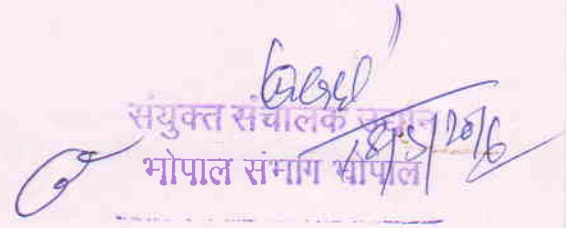 संयुक्त संचालक उद्यान
18/5/2016
भोपाल संभाग भोपाल